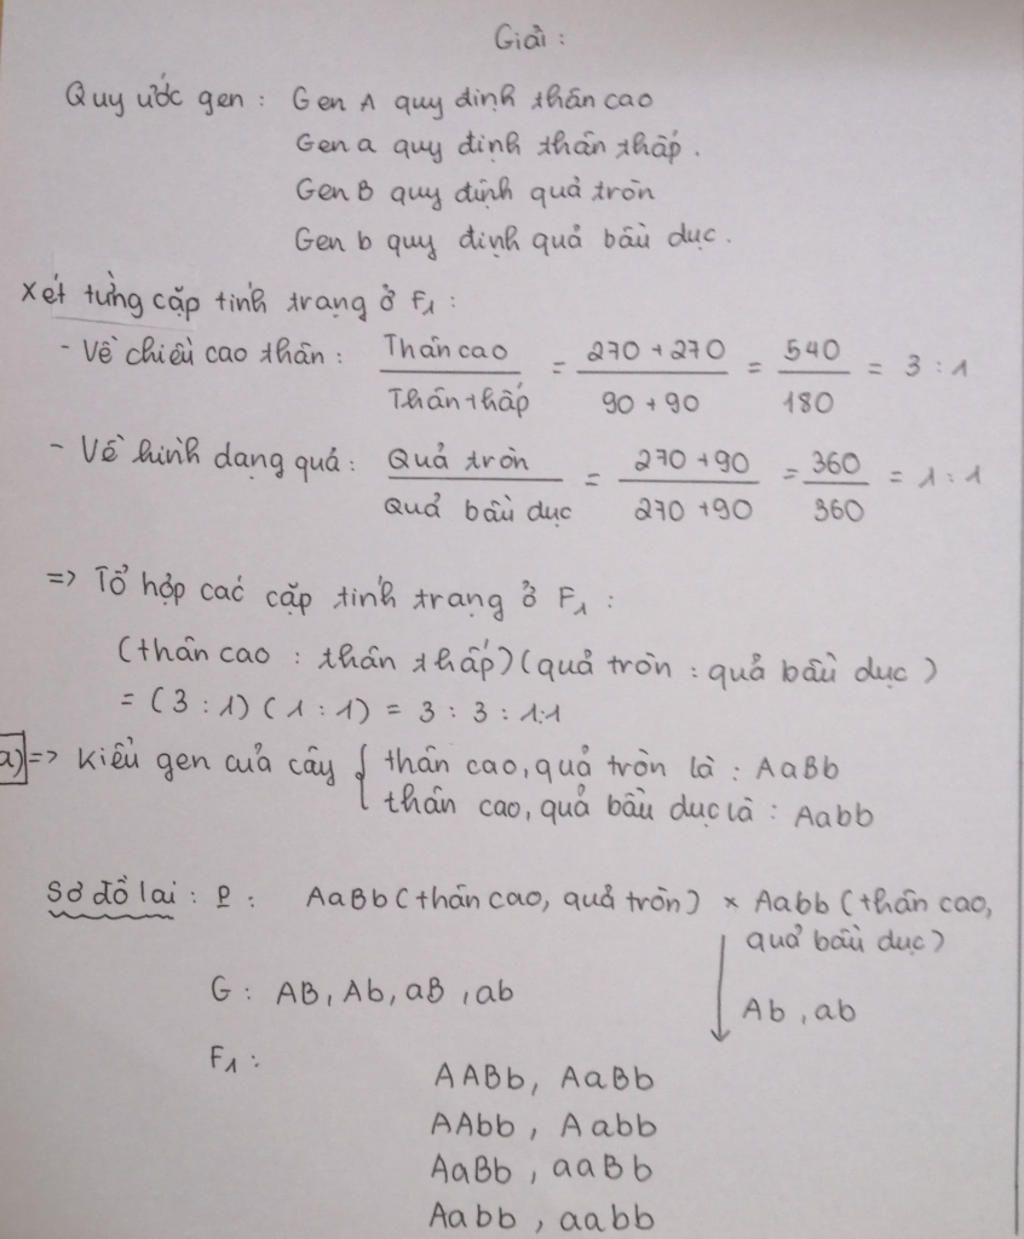 Giải :
Quy ước gen : Gen A quy định thân cao
Gen a quy định thân thấp.
Gen B quy định quả tròn
Gen b quy định quả bầu dục.
Xét từng cặp tính trạng ở F1 :
- Về chiều cao thân : Thân cao / Thân thấp = 270 + 270 / 90 + 90 = 540 / 180 = 3 : 1
- Về hình dạng quả : Quả tròn / Quả bầu dục = 270 + 90 / 270 + 90 = 360 / 360 = 1 : 1
=> Tổ hợp các cặp tính trạng ở F1 :
(thân cao : thân thấp) (quả tròn : quả bầu dục)
= (3 : 1) (1 : 1) = 3 : 3 : 1:1
a) => Kiểu gen của cây { thân cao, quả tròn là : AaBb
thân cao, quả bầu dục là : Aabb
Sơ đồ lai : P : AaBb (thân cao, quả tròn) × Aabb (thân cao,
quả bầu dục)
G : AB, Ab, aB, ab Ab, ab
F1 :
AABb, AaBb
AAbb, Aabb
AaBb, aaBb
Aabb, aabb